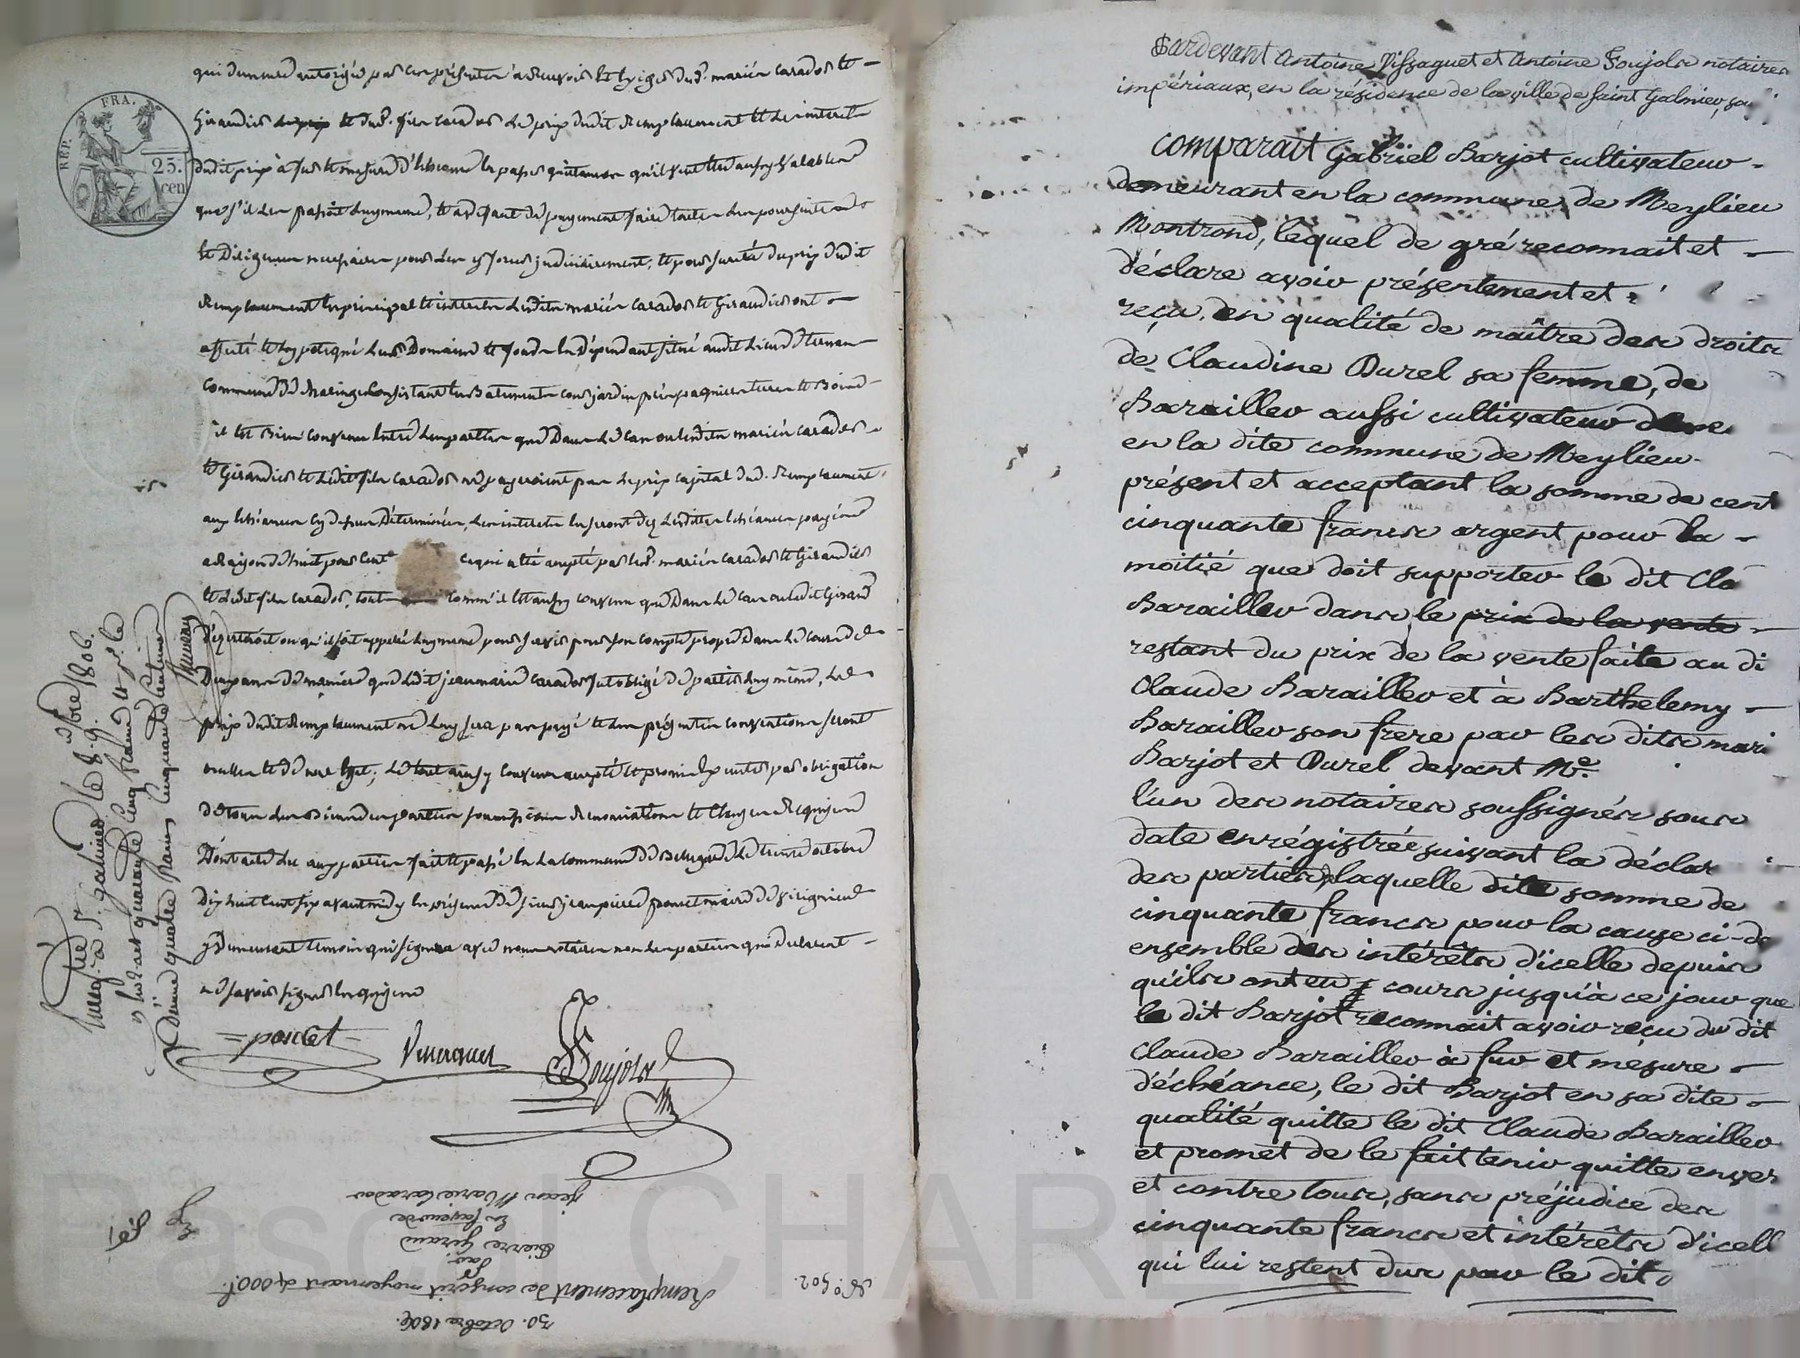 qui demeure autorisé par ces présentes à recevoir et exiger dud. mariés Carados et
Giraudier et dud. fils Carados le prix dudit remplacement et les interets
dudit prix à fur et mesure d'échéance en passer quittances qu'il veut être aussy valables
que s'il les passoit luy meme, et à défaut de payement faire toutes les poursuites
et diligences necessaires pour les y forcer judiciairement; et pour sureté du prix dudit
remplacement en principal et interets lesdits mariés Carados et Giraudier ont
affecté et hypotequé leur Domaine et fonds en dépendant situé audit lieu
commune de Maringes consistant en Batiments cour jardin prés paquiers terres et Bois
il est Bien convenu entre les parties que dans le cas ou lesdits mariés Carados
et Giraudier et ledit fils Carados ne payeroient pas le prix capital dud. remplacement
aux échéances cy dessus déterminées, les interets en seront dez lesdittes échéances payés
à raison de huit pour cent ce qui a été accepté par lesd. mariés Carados et Giraudier
et ledit fils Carados, tout comm'il est aussy convenu que dans le cas ou ledit Giraud
déserteroit ou qu'il fût appellé luy meme pour servir pour son compte propre dans le cours de
de maniere que ledit jean marie Carados fut obligé de partir luy même, le
prix dudit remplacement ne luy sera pas payé et les présentes conventions seront
nulles et de nul effet; le tout ainsy convenu accepté et promis exécuter par obligation
de tous les Biens des parties soumissions renonciations et clauses requises
Dont acte lu aux parties fait et passé en la commune de Bellegarde le trente octobre
dix huit cent six avant midy en présence de sieur jean pierre poncet maire de
y demeurant temoin qui signera avec nous notaires non les parties qui déclarent
ne savoir signer enquises
poncet
Vissaguet
Soujols
Enreg. à St. galmier le 8 9bre 1806.
RÉP. FRA.
25. cen
30. Octobre 1806.
No. 502.
Remplacement de conscrit moyennant 4000f.
par
Pierre Giraud
en faveur de
Jean Marie Carados
Pardevant Antoine Vissaguet et Antoine Soujols notaires
impériaux, en la résidence de la ville de Saint Galmier, sou
Comparait Gabriel Barjot cultivateur
demeurant en la commune de Meylieu
Montrond, lequel de gré reconnait et
déclare avoir présentement et
reçu, en qualité de maître des droits
de Claudine Durel sa femme, de
Barailler aussi cultivateur deme
en la dite commune de Meylieu
présent et acceptant la somme de cent
cinquante francs argent pour la
moitié que doit supporter le dit Cla
Barailler dans le prix de la vente
restant du prix de la vente faite au di
Claude Barailler et à Barthelemy
Barailler son frère par les dits mari
Barjot et Durel devant Me.
l'un des notaires soussignés sous
date enrégistrée suivant la déclar
des parties, laquelle dite somme de
cinquante francs pour la cause ci-de
ensemble des intérêts d'icelle depuis
qu'ils ont eu cours jusqu'à ce jour que
le dit Barjot reconnait avoir reçu du dit
Claude Barailler à fur et mesure
d'échéance, le dit Barjot en sa dite
qualité quitte le dit Claude Barailler
et promet de le fait tenir quitte enver
et contre tous, sans préjudice des
cinquante francs et intérêts d'icell
qui lui restent dus par le dit